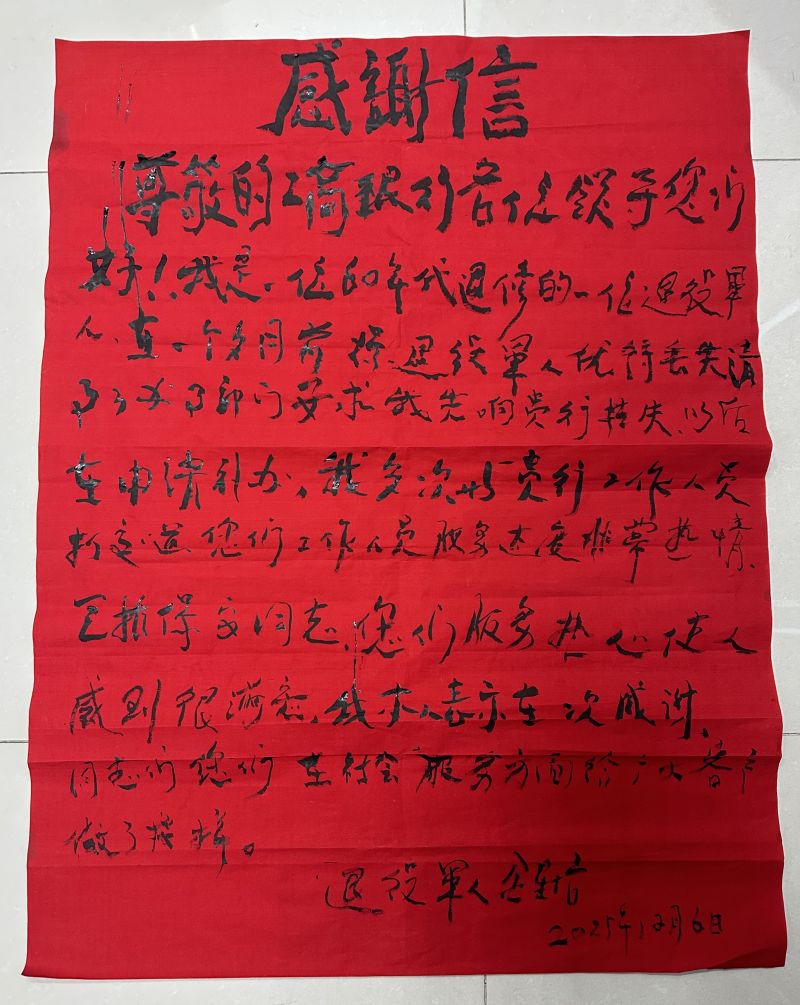 感謝信
尊敬的工商银行各位领导您们
好!我是一位60年代退修的一位退役軍
人、在一个多月前将退役軍人优待丢失清
了了 部门要求我先 贵行挂失、以后
在申请补办,我多次与贵行工作人员
打交道、您们工作人员服务态度非常热情、
王 保安同志、您们服务热心使人
感到很满意,我本人表示在次感谢、
同志们您们在社会服务方面给广大客户
做了榜样。
退役軍人
2025年12月6日